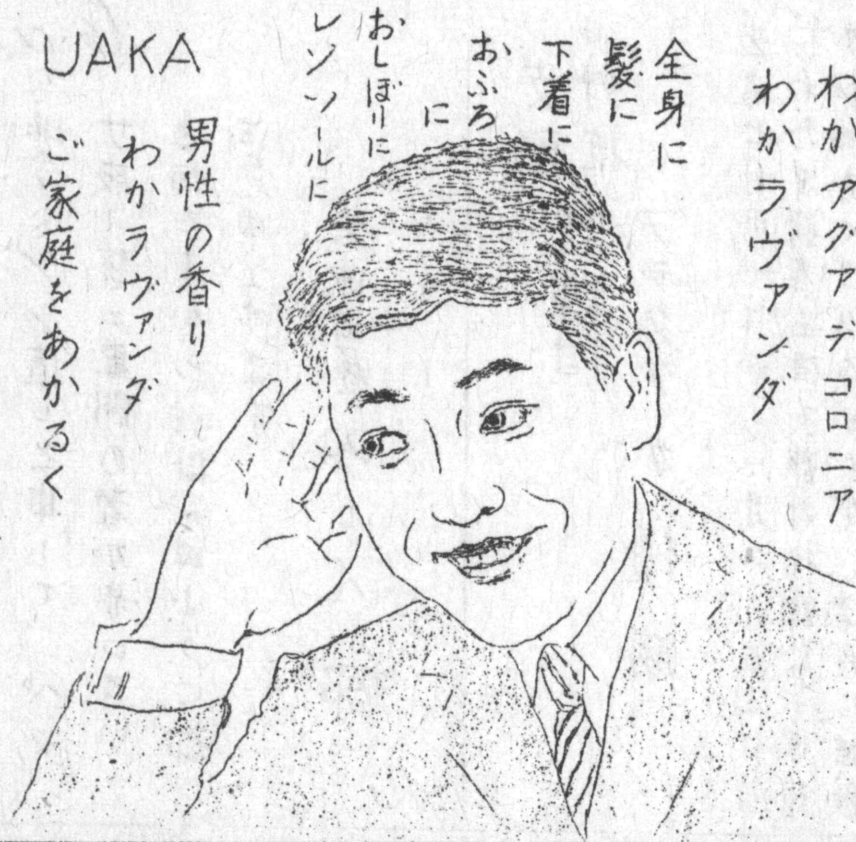 わかアグアデコロニア
わかラヴァンダ
全身に
髪に
下着に
おふろ
に
おしぼりに
レンソールに
男性の香り
わかラヴァンダ
ご家庭をあかるく
UAKA